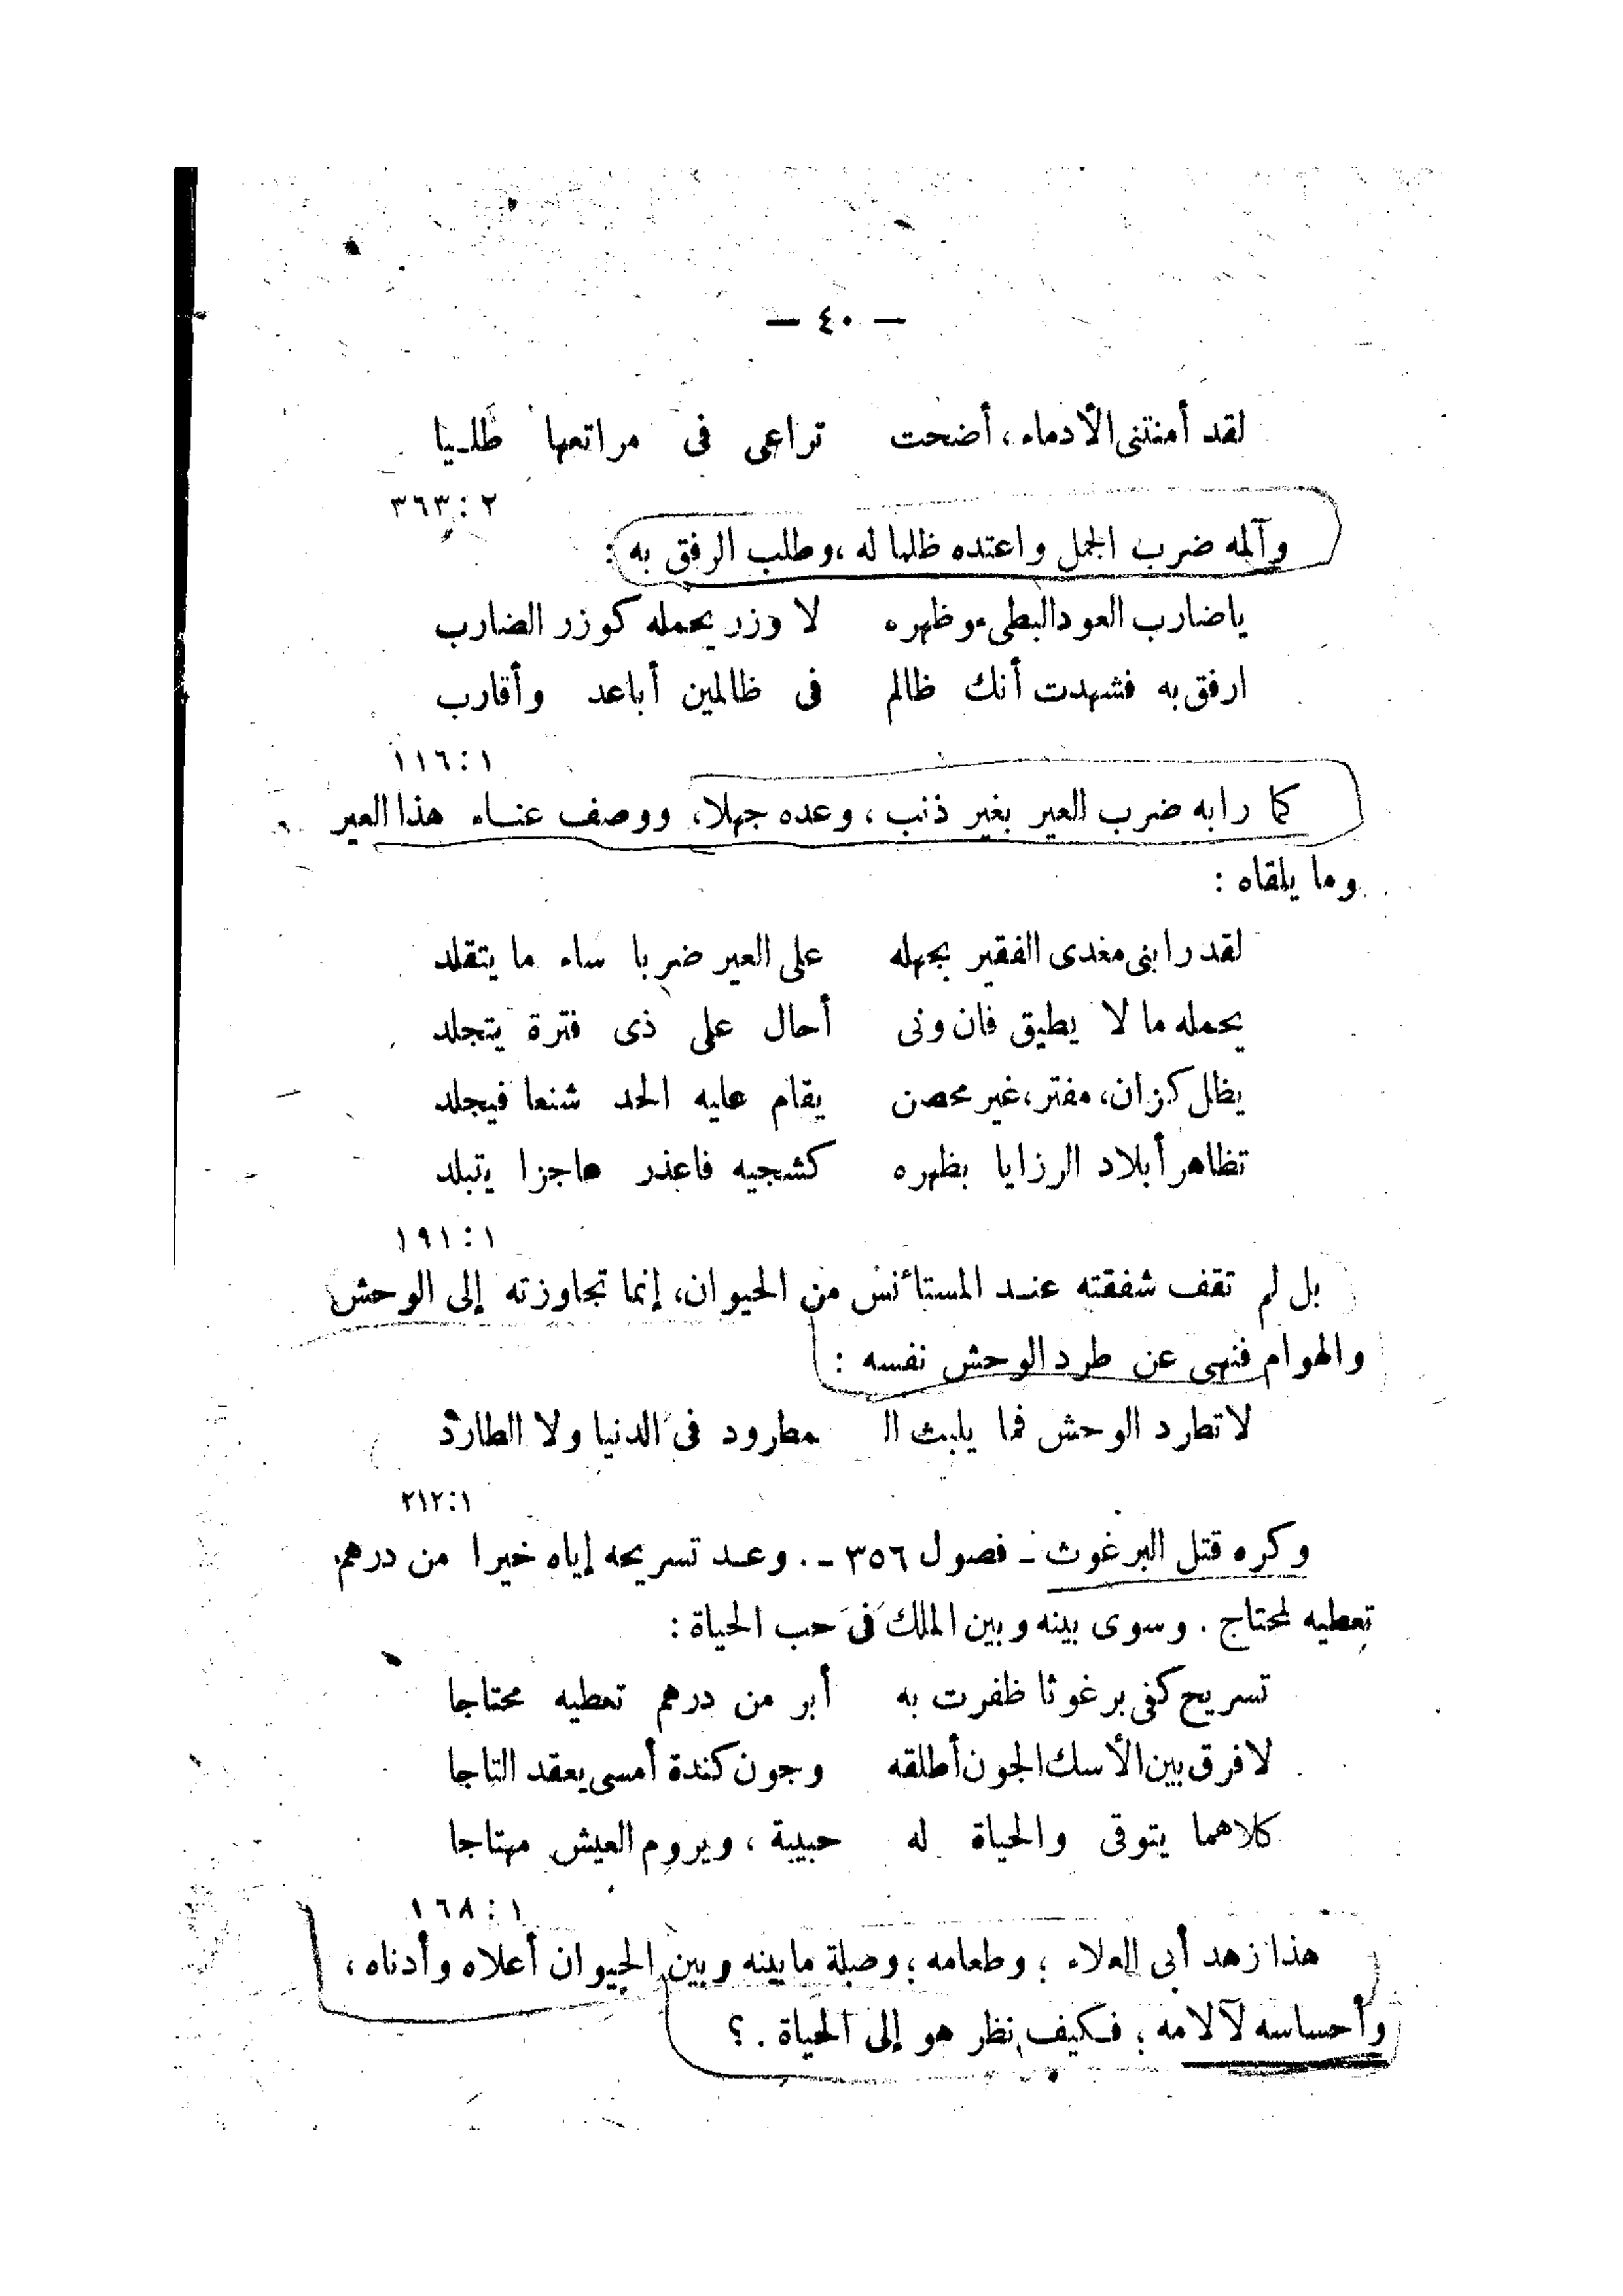 — ٤٠ —
لقد أمنتنى الأدماء، أضحت تراعى فى مراتعها طليا
٢ : ٣٦٣
وآلمه ضرب الجمل واعتده ظلما له ،وطلب الرفق به :
ياضارب العود البطىء وظهره لا وزر يحمله كوزر الضارب
ارفق به فشهدت أنك ظالم فى ظالمين أباعد وأقارب
١ : ١١٦
كما رابه ضرب العير بغير ذنب ، وعده جهلا، ووصف عناء هذا العير
وما يلقاه :
لقد رابنى مغدى الفقير بجهله على العير ضربا ساء ما يتقلد
يحمله ما لا يطيق فان ونى أحال على ذى فترة يتجلد
يظل كزان، مفتر، غير محصن يقام عليه الحد شنعا فيجلد
تظاهر أبلاد الرزايا بظهره كشجيه فاعذر عاجزا يتبلد
١ : ١٩١
بل لم تقف شفقته عند المستأنس من الحيوان، إنما تجاوزته إلى الوحش
والهوام فنهى عن طرد الوحش نفسه :
لا تطرد الوحش فما يلبث الـ مطرود فى الدنيا ولا الطارد
١ : ٢١٢
وكره قتل البرغوث ـ فصول ٣٥٦ ـ . وعد تسريحه إياه خيرا من درهم
تعطيه لمحتاج . وسوى بينه وبين الملك فى حب الحياة :
تسريح كفى برغوثا ظفرت به أبر من درهم تعطيه محتاجا
لا فرق بين الأسك الجون أطلقه وجون كندة أمسى يعقد التاجا
كلاهما يتوقى والحياة له حبيبة ، ويروم العيش مهتاجا
١ : ١٦٨
هذا زهد أبى العلاء ؛ وطعامه ؛ وصلة مابينه وبين الحيوان أعلاه وأدناه ،
وأحساسه لآلامه ؛ فكيف نظر هو إلى الحياة . ؟